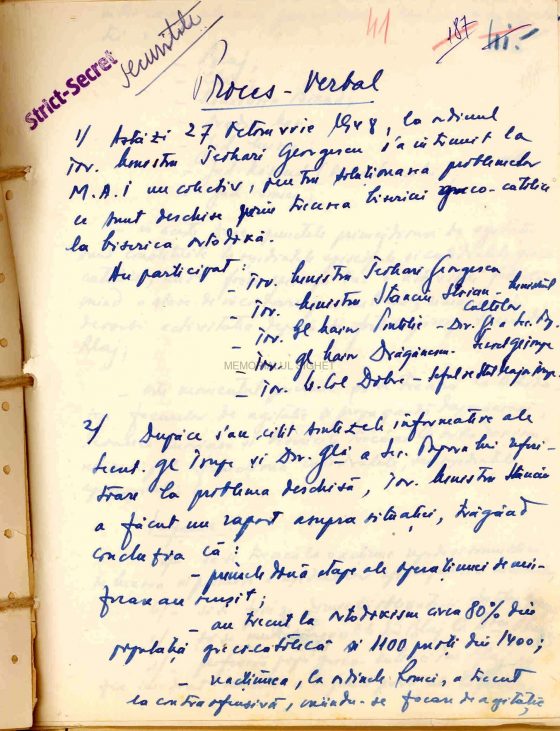 Strict-Secret
securitate
41
187
Proces-Verbal
1) Astăzi 27 Octombrie 1948, la ordinul
Tov. Ministru Teohari Georgescu s'a întrunit la
M.A.I un colectiv, pentru soluționarea problemelor
ce sunt deschise prin trecerea bisericii greco-catolice
la biserica ortodoxă.
Au participat: - Tov. Ministru Teohari Georgescu
- Tov. Ministru Stanciu Stoian - Ministerul
Cultelor
- Tov. Gl maior Pintilie - Dir. Gl a Sec. Pop
- Tov. gl. maior Drăgănescu -
- Tov. Lt. Col Dobre -
MEMORIALUL SIGHET
2) După ce s'au citit sintezele informative ale
Secret. gl Trupe și Dir. Glă a Sec. Poporului referi-
toare la problema deschisă, Tov. Ministru Stanciu
a făcut un raport asupra situației, trăgând
concluzia că:
- primele două etape ale operațiunei de uni-
ficare au reușit;
- au trecut la ortodoxism circa 80% din
populația greco-catolică și 1100 preoți din 1400;
- reacțiunea, la ordinele Romei, a trecut
la contraofensivă, creându-se focare de agitație